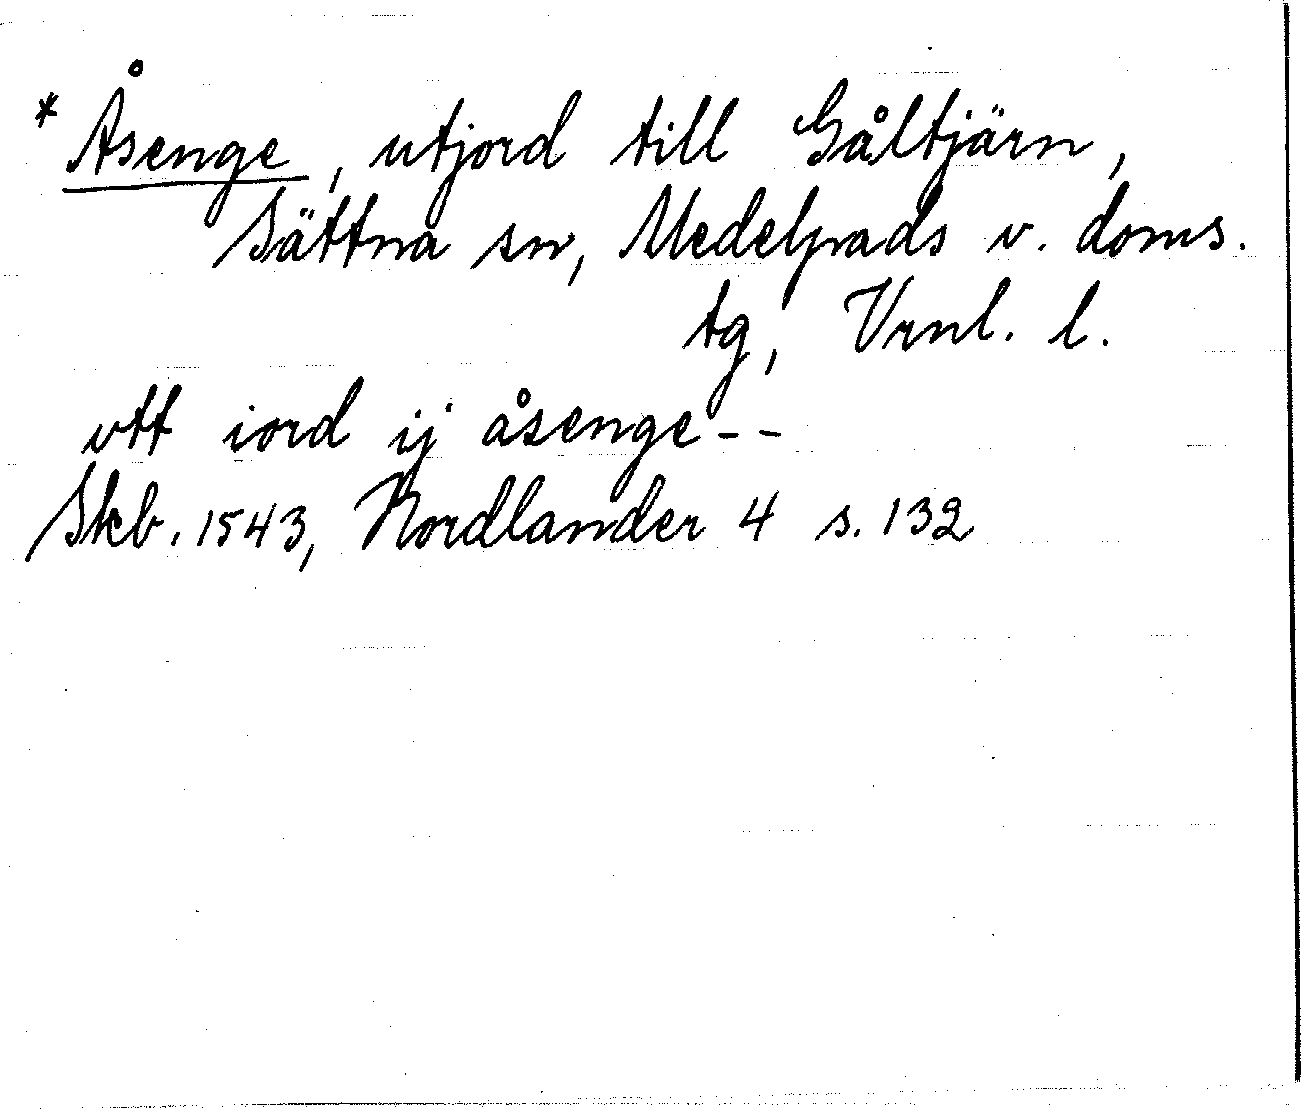 * Åsenge, utjord till Gåltjärn,
Sättna sn, Medelpads v. doms.
tg, Vrnl. l.
vtt iord ij åsenge - -
Skb. 1543, Nordlander 4 s. 132